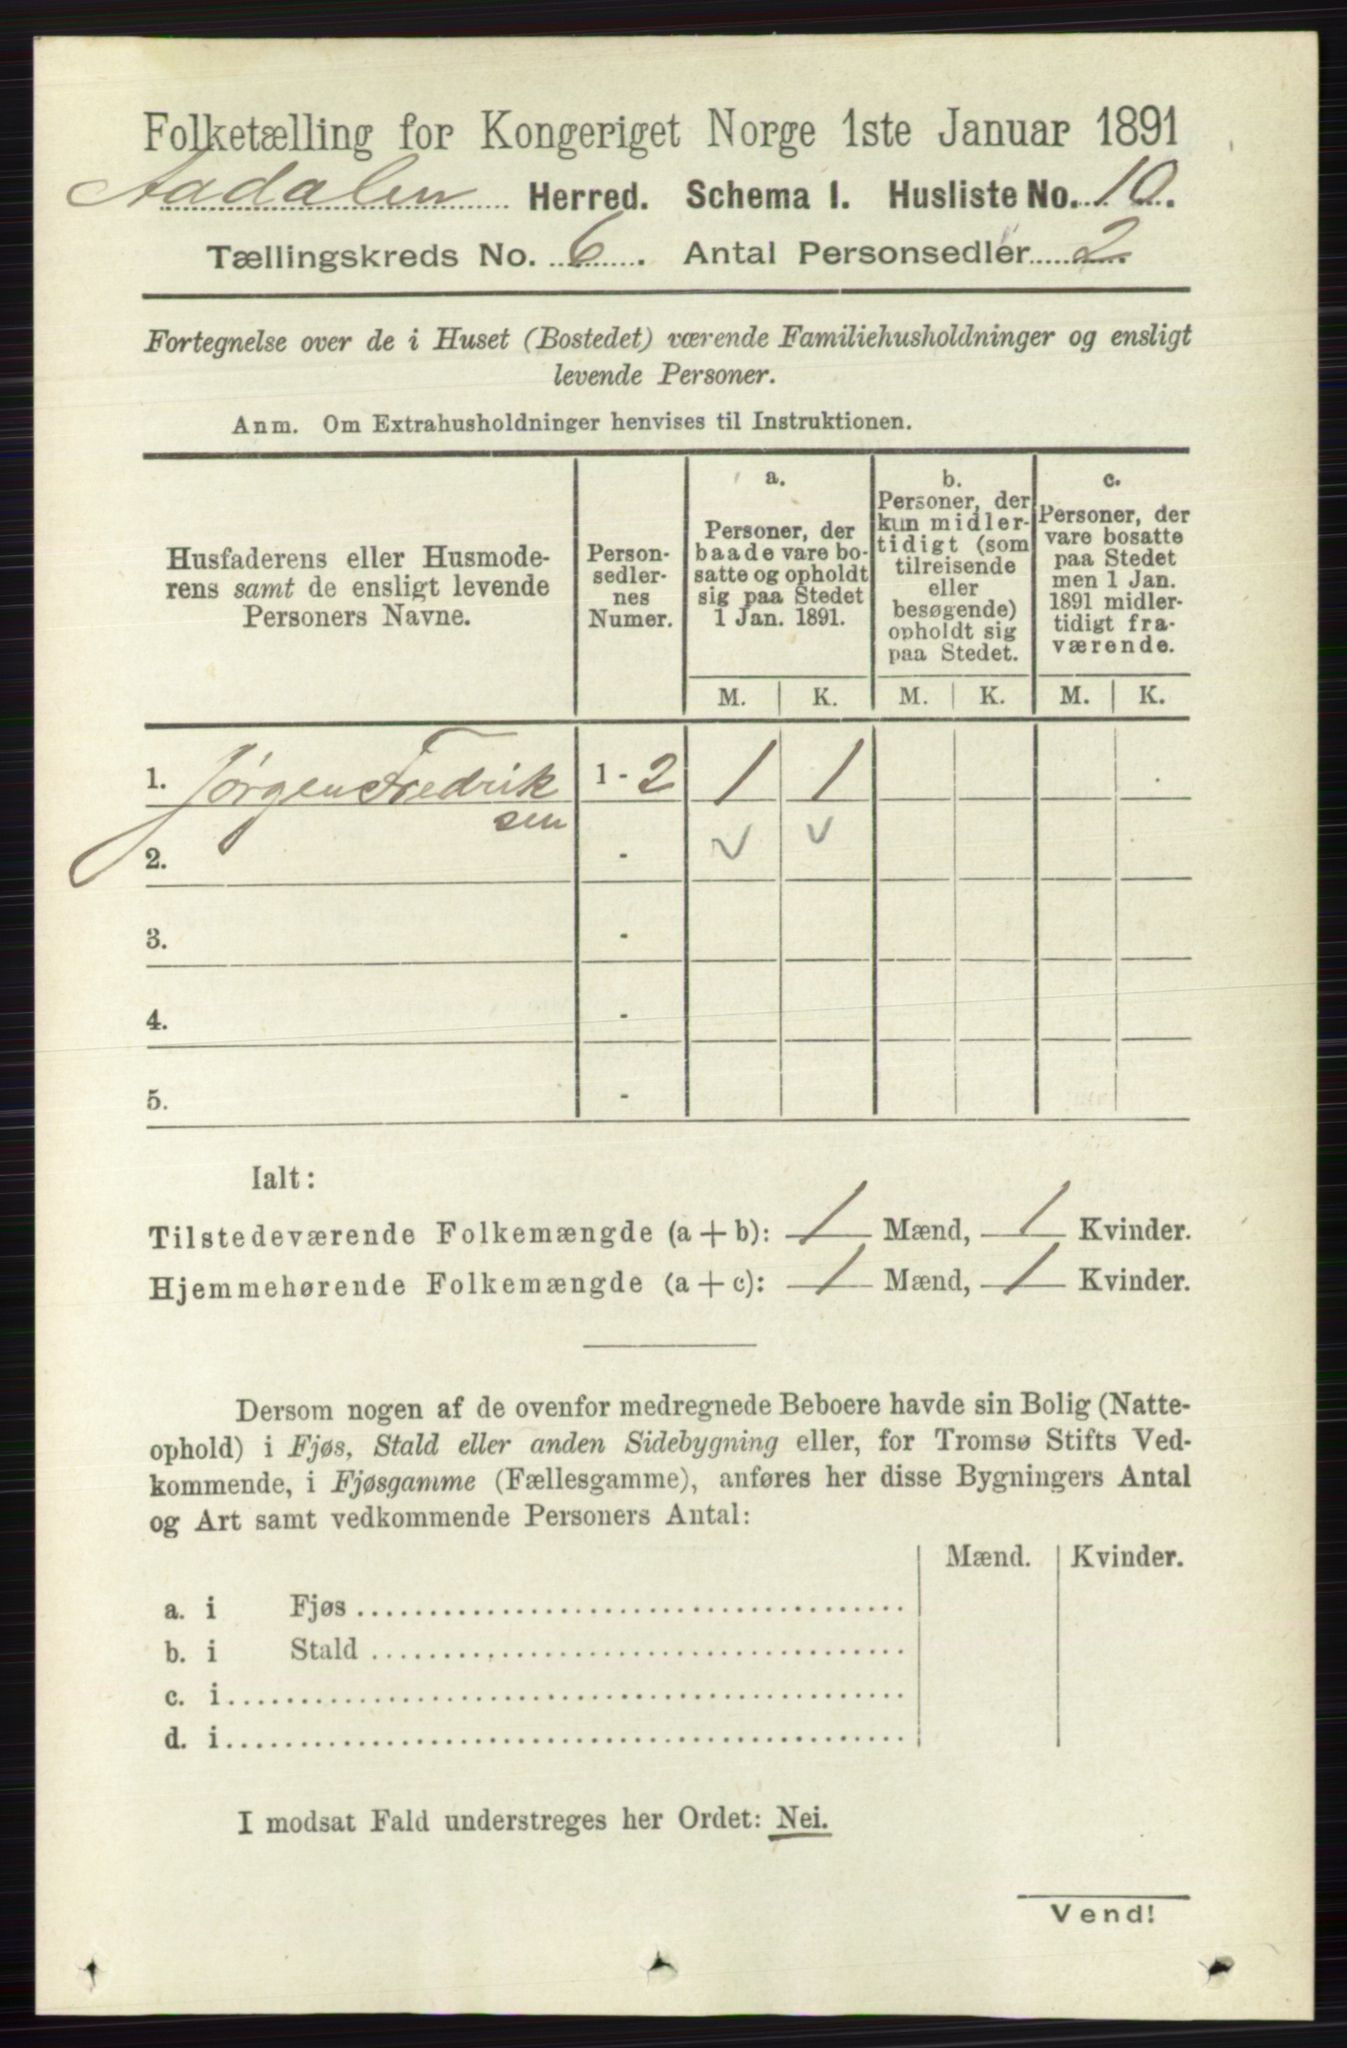 Folketælling for Kongeriget Norge 1ste Januar 1891
Aadalen Herred. Schema I. Husliste No. 10.
Tællingskreds No. 6. Antal Personsedler 2.
Fortegnelse over de i Huset (Bostedet) værende Familiehusholdninger og ensligt
levende Personer.
Anm. Om Extrahusholdninger henvises til Instruktionen.
Husfaderens eller Husmode-
rens samt de ensligt levende
Personers Navne.
Person-
sedler-
nes
Numer.
a.
Personer, der
baade vare bo-
satte og opholdt
sig paa Stedet
1 Jan. 1891.
b.
Personer, der
kun midler-
tidigt (som
tilreisende
eller
besøgende)
opholdt sig
paa Stedet.
c.
Personer, der
vare bosatte
paa Stedet
men 1 Jan.
1891 midler-
tidigt fra-
værende.
M. K. M. K. M. K.
1. Jørgen Fredrik 1 - 2 1 1
sen
2. - v v
3. -
4. -
5. -
Ialt:
Tilstedeværende Folkemængde (a + b): 1 Mænd, 1 Kvinder.
Hjemmehørende Folkemængde (a + c): 1 Mænd, 1 Kvinder.
Dersom nogen af de ovenfor medregnede Beboere havde sin Bolig (Natte-
ophold) i Fjøs, Stald eller anden Sidebygning eller, for Tromsø Stifts Ved-
kommende, i Fjøsgamme (Fællesgamme), anføres her disse Bygningers Antal
og Art samt vedkommende Personers Antal:
Mænd. Kvinder.
a. i Fjøs
b. i Stald
c. i
d. i
I modsat Fald understreges her Ordet: Nei.
Vend!